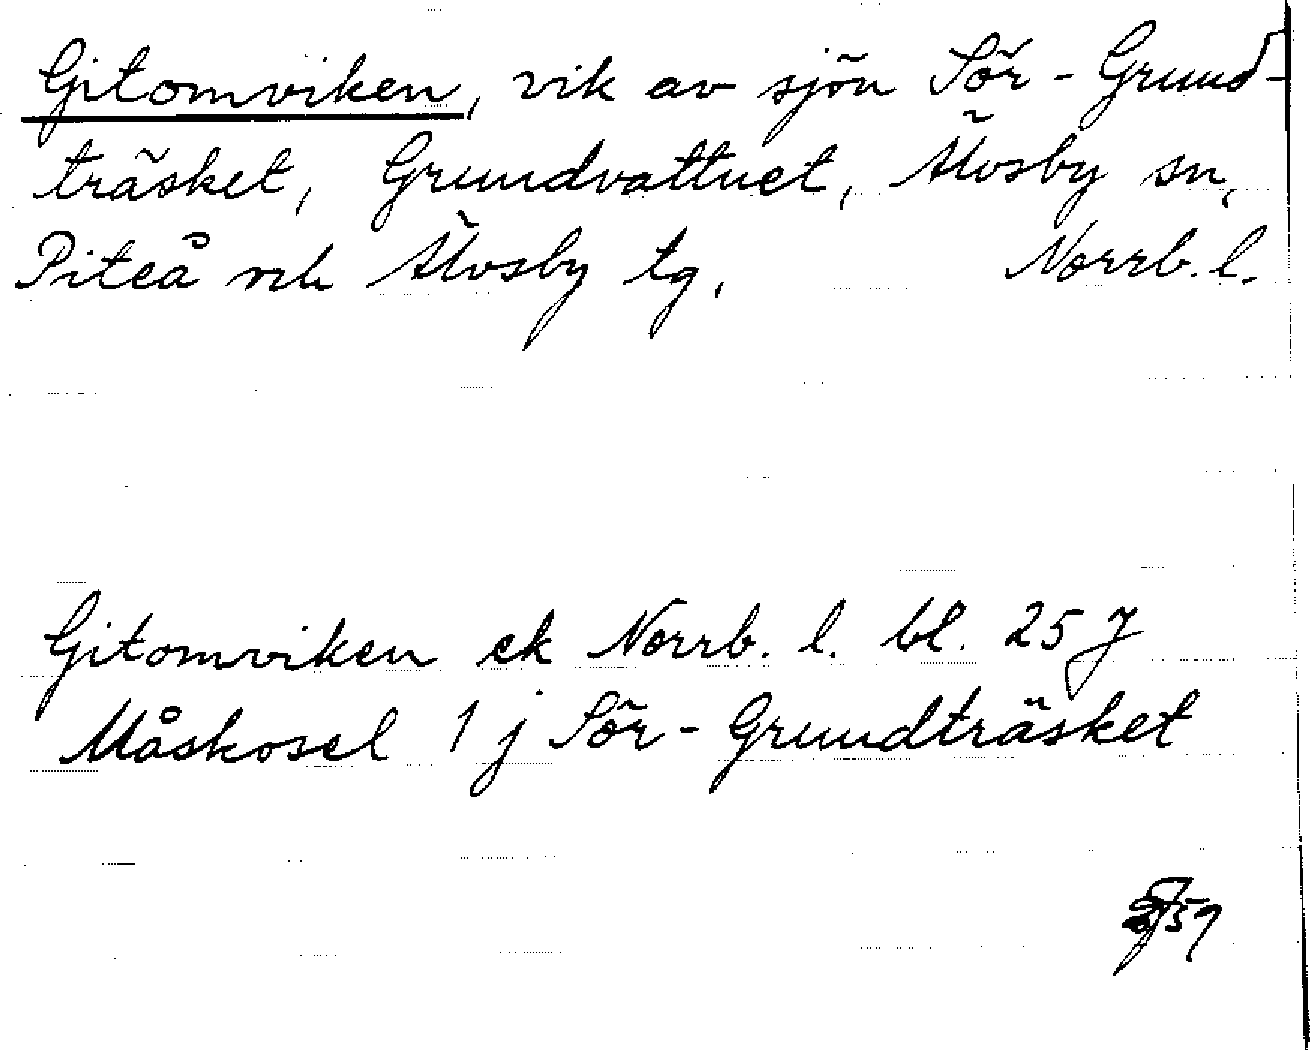 Gitomviken, vik av sjön Sör-Grund-
träsket, Grundvattnet, Älvsby sn,
Piteå och Älvsby tg, Norrb. l.
Gitomviken ek Norrb. l. bl. 25 J
Måskosel 1 j Sör-Grundträsket